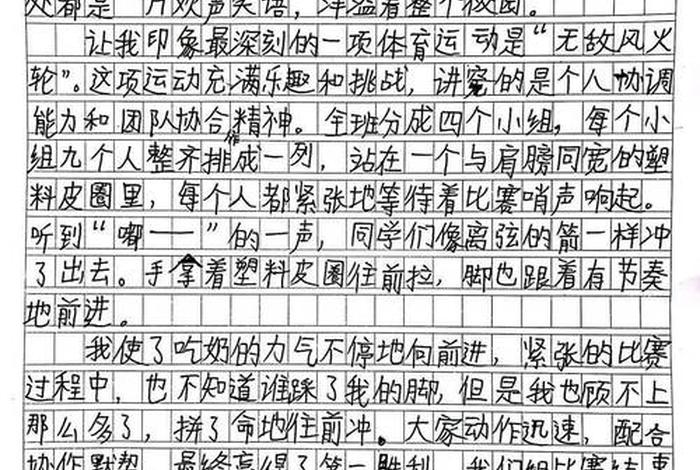 处都是一片欢声笑语，洋溢着整个校园。
让我印象最深刻的一项体育运动是“无敌风火
轮”。这项运动充满乐趣和挑战，讲究的是个人协调
能力和团队协合作精神。全班分成四个小组，每个小
组九个人整齐排成一列，站在一个与肩膀同宽的塑
料皮圈里，每个人都紧张地等待着比赛哨声响起。
听到“嘟——”的一声，同学们像离弦的箭一样冲
了出去。手拿着塑料皮圈往前拉，脚也跟着有节奏
地前进。
我使了吃奶的力气不停地向前进，紧张的比赛
过程中，也不知道谁踩了我的脚，但是我也顾不上
那么多了，拼了命地往前冲。大家动作迅速，配合
协作默契，最终赢得了第一胜利。我们组比赛结束